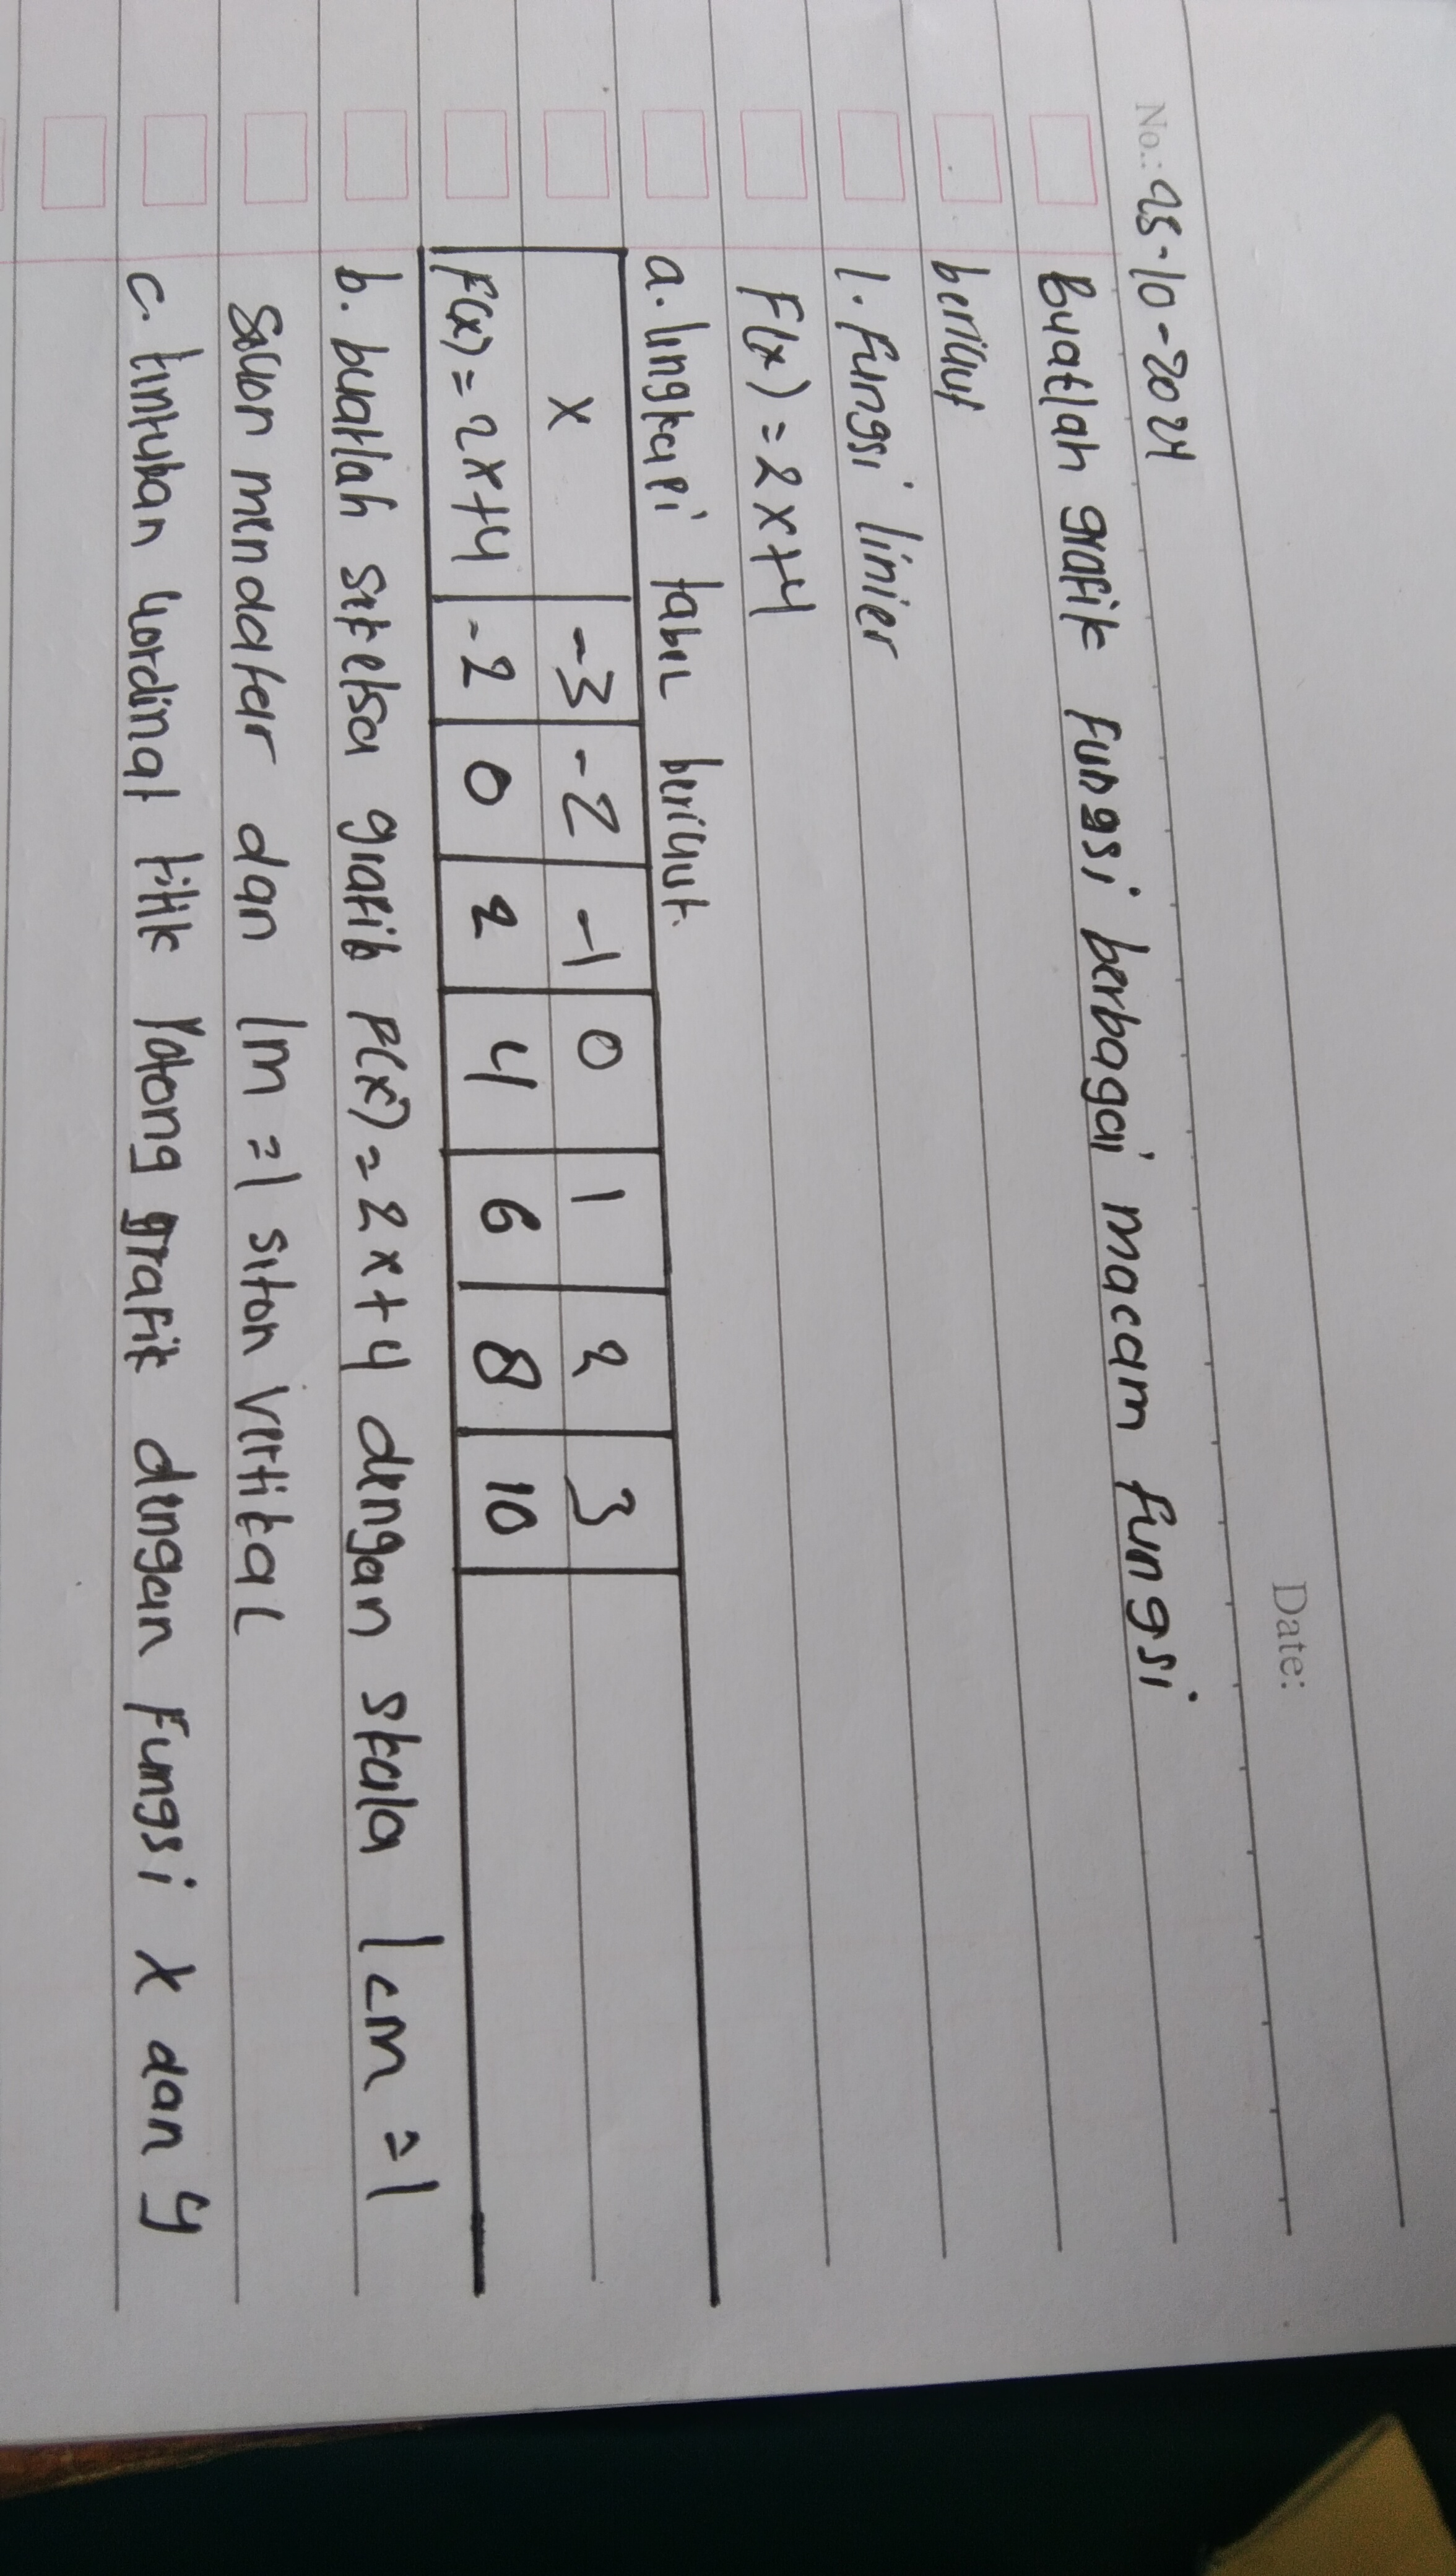 No.: 25-10-2024
Date:
Buatlah grafik fungsi berbagai macam fungsi
berikut
1. fungsi linier
F(x) = 2x+4
a. lingkapi tabel berikut.
x -3 -2 -1 0 1 2 3
F(x) = 2x+4 -2 0 2 4 6 8 10
b. buatlah sketsa grafik F(x) = 2x+4 dengan skala 1cm = 1
mendatar dan 1m = 1 vertikal
c. tintukan kordinat titik Potong grafik dengan Fungsi x dan y